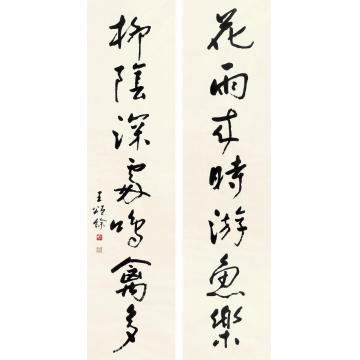 花雨来時游魚樂
柳陰深處鳴禽多
王頌餘